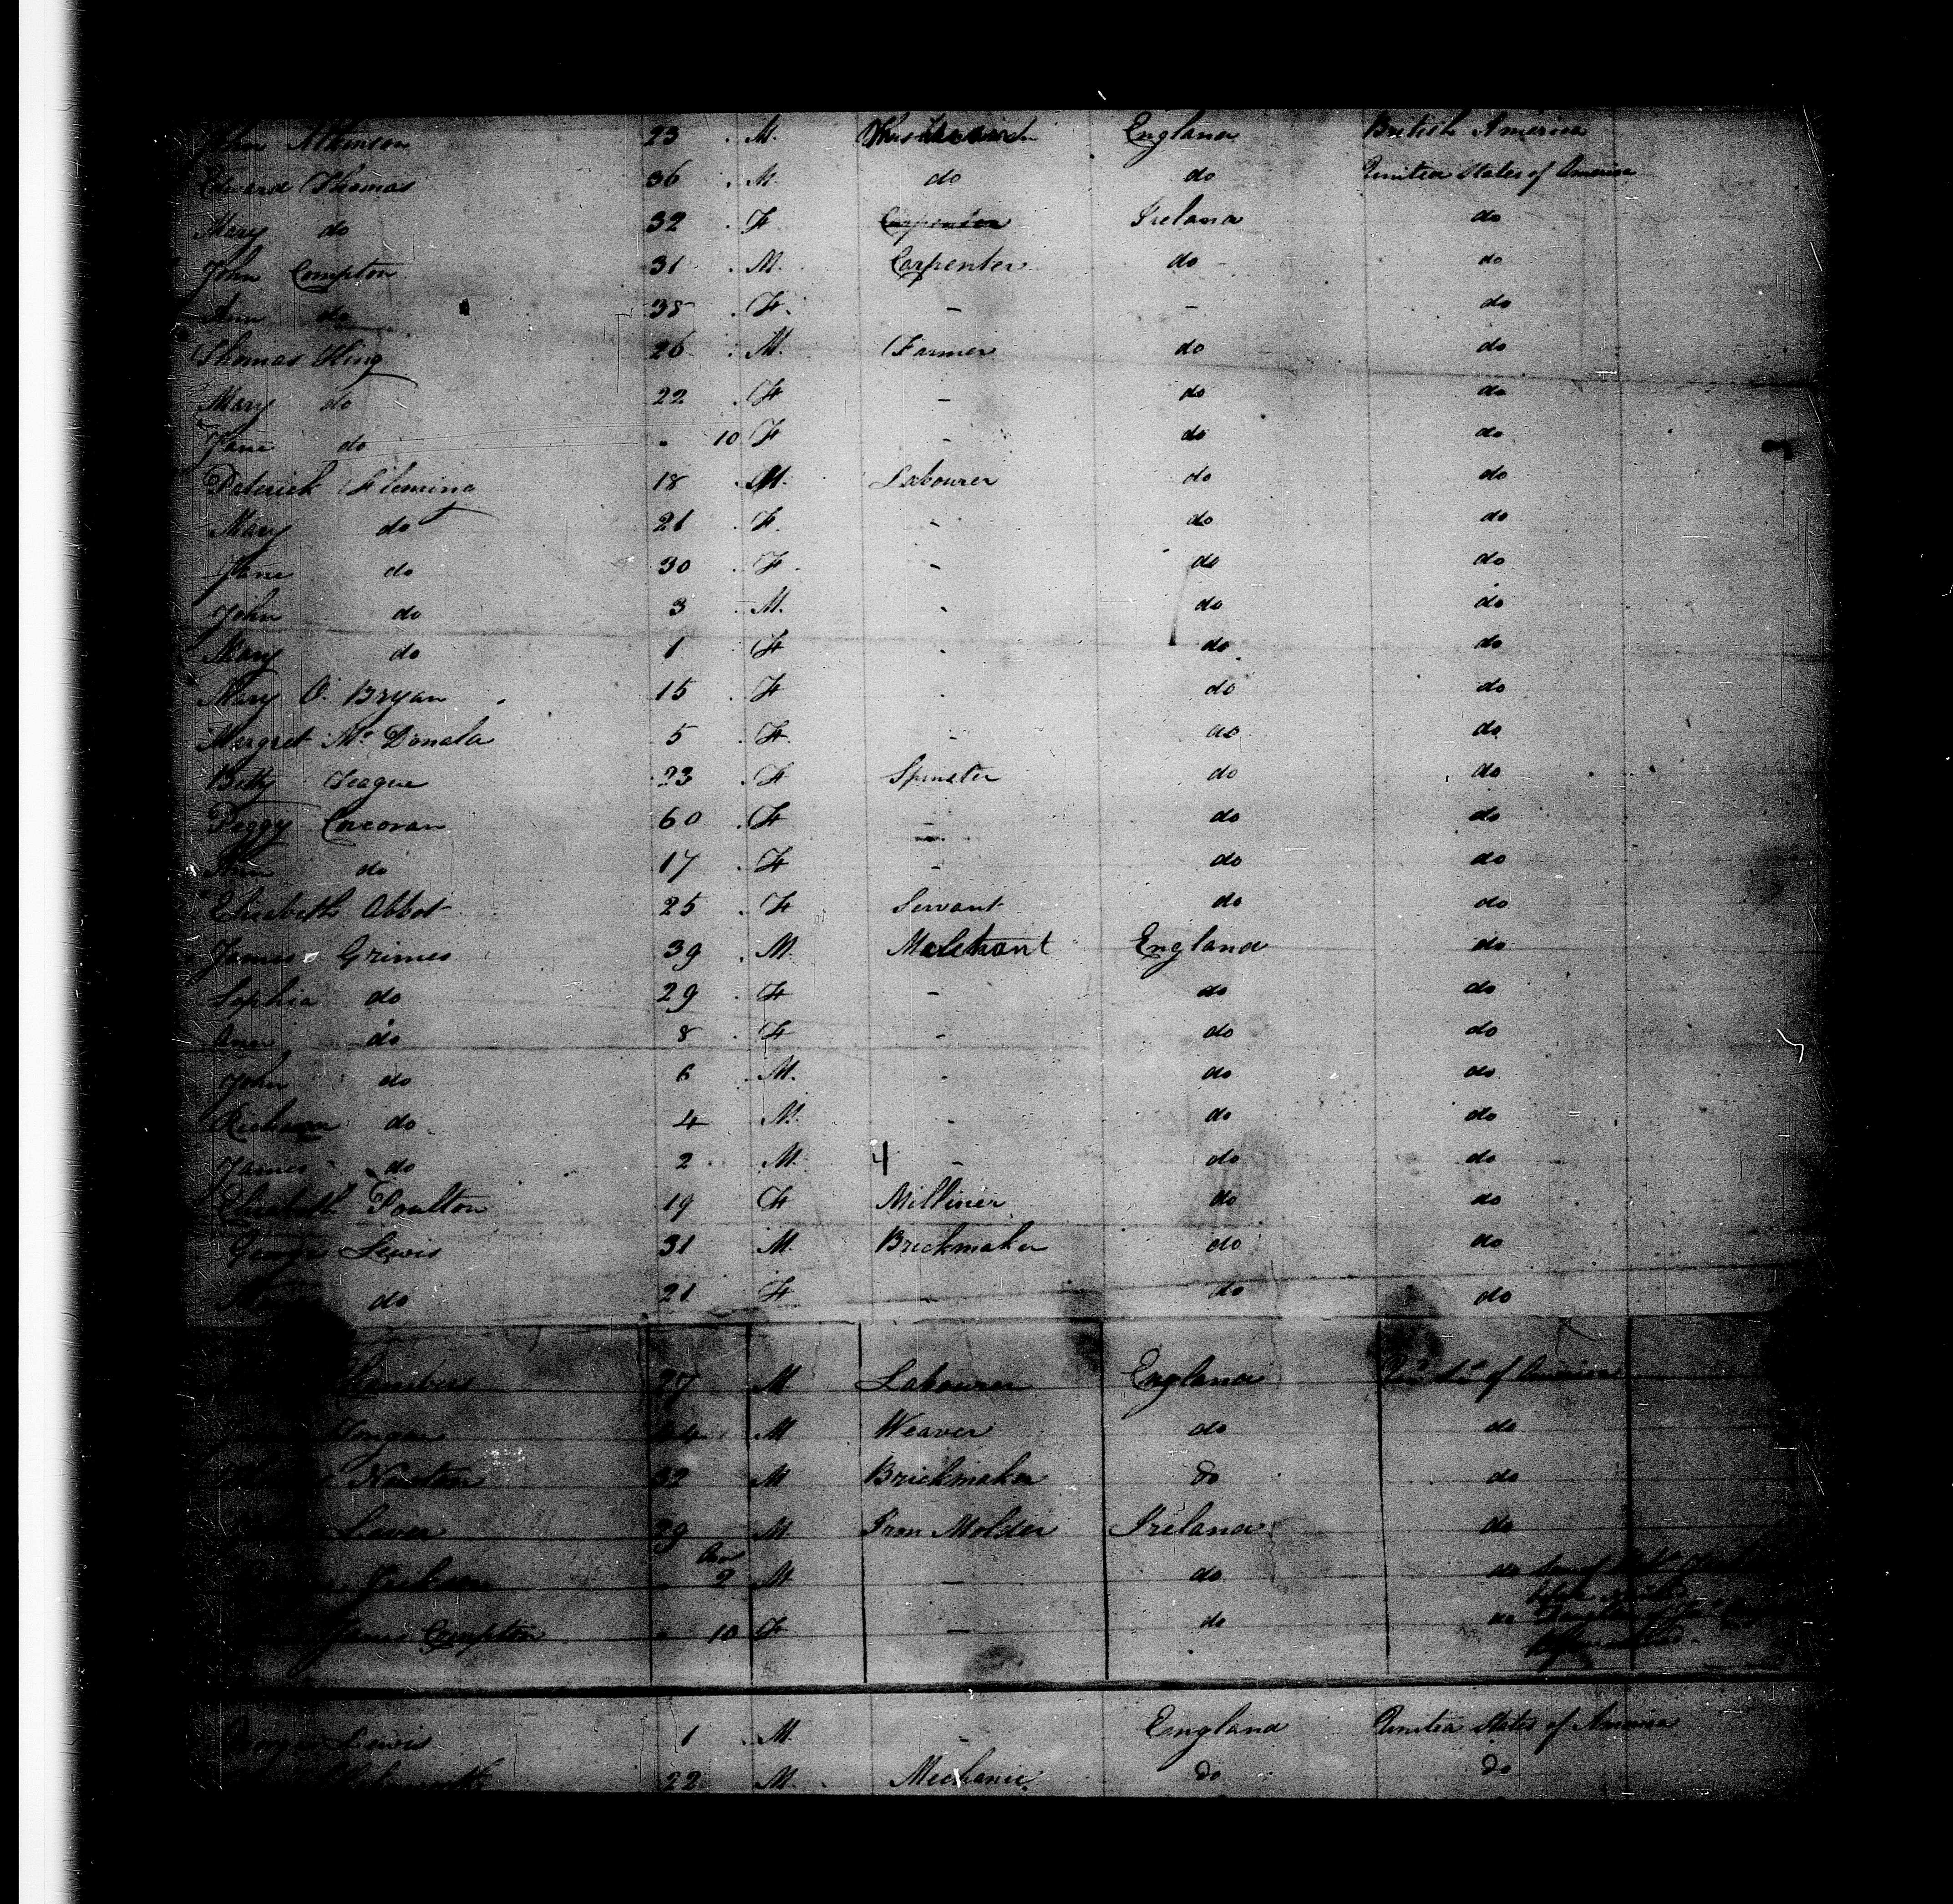 John Atkinson 23 M. England British America
Edward Thomas 36 M. do do United States of America
Mary do 32 F. Carpenter Ireland do
John Compton 31 M. Carpenter do do
Ann do 38 F. - - do
Thomas King 26 M. Farmer do do
Mary do 22 F - do do
Jane do 10 F - do do
Paterick Fleming 18 M. Labourer do do
Mary do 21 F. - do do
Jane do 30 F. - do do
John do 3 M. do do
Mary do 1 F do do
Mary O. Bryan 15 F do do
Margret Mc Donald 5 F. - do do
Betty Teague 23 F Spinster do do
Peggy Corcoran 60 F - do do
Ann do 17 F - do do
Elizabeth Abbot 25 F Servant do do
James Grimes 39 M. Merchant England do
Sophia do 29 F - do do
do 8 F - do do
John do 6 M. do do
Richard do 4 M. do do
James do 2 M. - do do
Elizabeth Poulton 19 F Milliner do do
George Lewis 31 M. Brickmaker do do
do 21 F - do do
27 M Labourer England of America
M Weaver do do
32 M Brickmaker do do
29 M Iron Molder Ireland do
2 M - do do
Jane Compton 10 F - do do
George Lewis 1 M. - England United States of America
22 M. Mechanic do do